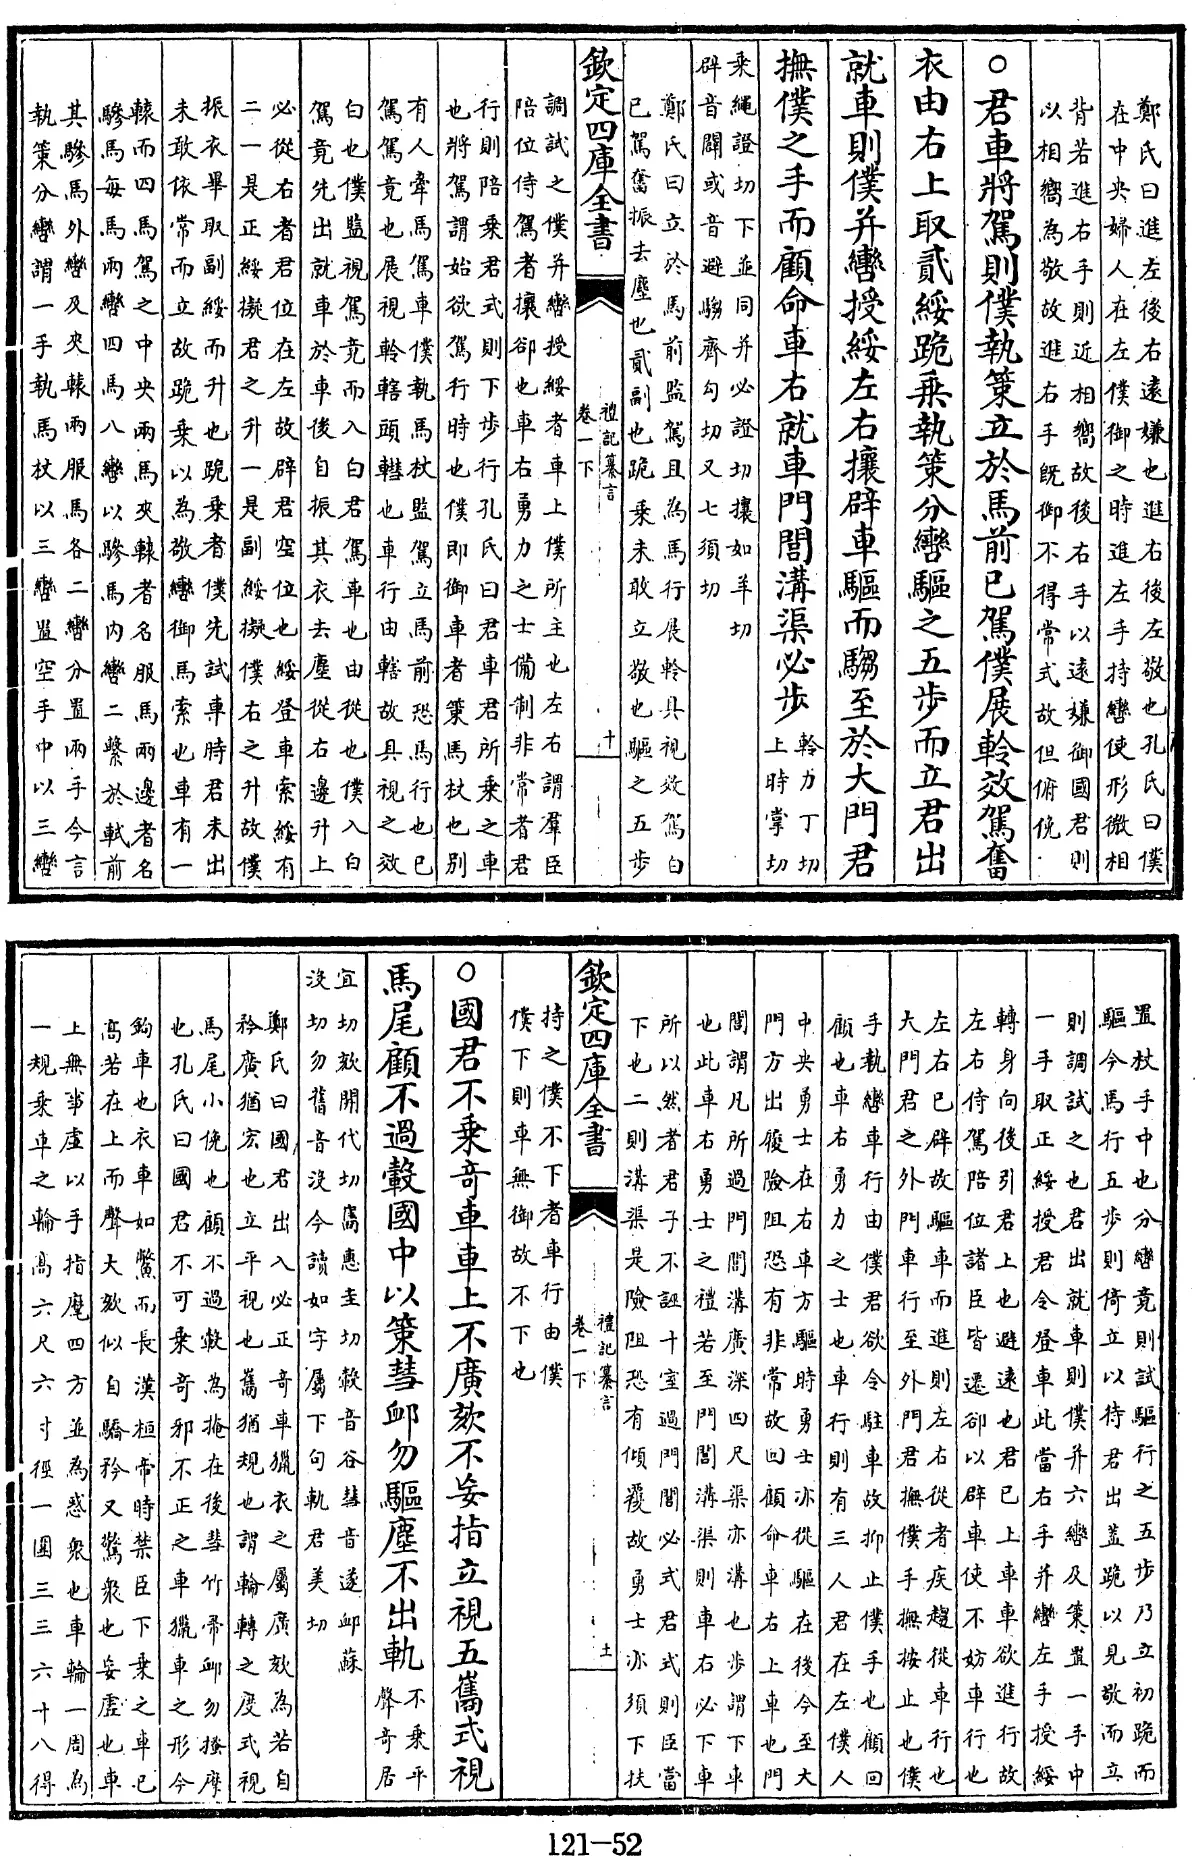 鄭氏曰進左後右遠嫌也進右後左敬也孔氏曰僕
在中央婦人在左僕御之時進左手持轡使形微相
背若進右手則近相嚮故後右手以遠嫌御國君則
以相嚮為敬故進右手既御不得常式故但俯俛
○君車將駕則僕執策立於馬前已駕僕展軨效駕奮
衣由右上取貳綏跪乗執策分轡驅之五步而立君出
就車則僕并轡授綏左右攘辟車驅而騶至於大門君
撫僕之手而顧命車右就車門閭溝渠必步
軨力丁切
上時掌切
乗繩證切下並同并必證切攘如羊切
辟音闢或音避騶齊勾切又七須切
鄭氏曰立於馬前監駕且為馬行展軨具視效駕白
已駕奮振去塵也貳副也跪乗未敢立敬也驅之五步
欽定四庫全書
禮記纂言
卷一下
十
調試之僕并轡授綏者車上僕所主也左右謂羣臣
陪位侍駕者攘卻也車右勇力之士備制非常者君
行則陪乗君式則下步行孔氏曰君車君所乗之車
也將駕謂始欲駕行時也僕即御車者策馬杖也别
有人牽馬駕車僕執馬杖監駕立馬前恐馬行也已
駕駕竟也展視軨轄頭轊也車行由轄故具視之效
白也僕監視駕竟而入白君駕車也由從也僕入白
駕竟先出就車於車後自振其衣去塵從右邊升上
必從右者君位在左故辟君空位也綏登車索綏有
二一是正綏擬君之升一是副綏擬僕右之升故僕
振衣畢取副綏而升也跪乗者僕先試車時君未出
未敢依常而立故跪乗以為敬轡御馬索也車有一
轅而四馬駕之中央兩馬夾轅者名服馬兩邊者名
驂馬每馬兩轡四馬八轡以驂馬内轡二繫於軾前
其驂馬外轡及夾轅兩服馬各二轡分置兩手今言
執策分轡謂一手執馬杖以三轡置空手中以三轡
置杖手中也分轡竟則試驅行之五步乃立初跪而
驅今馬行五步則倚立以待君出盖跪以見敬而立
則調試之也君出就車則僕并六轡及策置一手中
一手取正綏授君令登車此當右手并轡左手授綏
轉身向後引君上也避遠也君已上車車欲進行故
左右侍駕陪位諸臣皆還卻以辟車使不妨車行也
左右已辟故驅車而進則左右從者疾趨從車行也
大門君之外門車行至外門君撫僕手撫按止也僕
手執轡車行由僕君欲令駐車故抑止僕手也顧回
顧也車右勇力之士也車行則有三人君在左僕人
中央勇士在右車方驅時勇士亦從驅在後今至大
門方出履險阻恐有非常故回顧命車右上車也門
閭謂凡所過門閭溝廣深四尺渠亦溝也步謂下車
也此車右勇士之禮若至門閭溝渠則車右必下車
所以然者君子不誣十室過門閭必式君式則臣當
下也二則溝渠是險阻恐有傾覆故勇士亦須下扶
欽定四庫全書
禮記纂言
卷一下
土
持之僕不下者車行由僕
僕下則車無御故不下也
○國君不乗奇車車上不廣欬不妄指立視五巂式視
馬尾顧不過轂國中以策彗卹勿驅塵不出軌
不乗平
聲奇居
宜切欬開代切巂惠圭切轂音谷彗音遂卹蘇
沒切勿舊音沒今讀如字屬下句軌君美切
鄭氏曰國君出入必正奇車獵衣之屬廣欬為若自
矜廣猶宏也立平視也巂猶規也謂輪轉之度式視
馬尾小俛也顧不過轂為掩在後彗竹帚卹勿搔摩
也孔氏曰國君不可乗奇邪不正之車獵車之形今
鈎車也衣車如鼈而長漢桓帝時禁臣下乗之車已
高若在上而聲大欬似自驕矜又驚衆也妄虛也車
上無事虛以手指麾四方並為惑衆也車輪一周為
一規乗車之輪高六尺六寸徑一圍三三六十八得
121-52